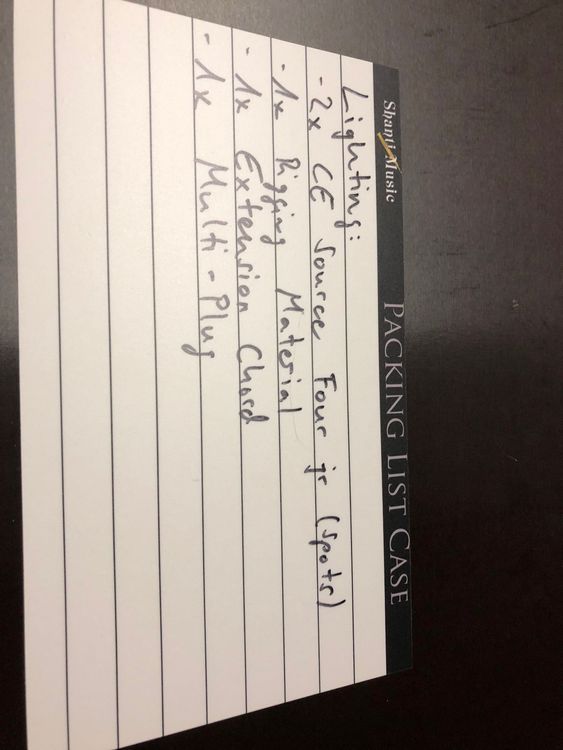 Shanti Music
PACKING LIST CASE
Lighting:
- 2x CE Source Four jr (spots)
- 1x Rigging Material
- 1x Extension Chord
- 1x Multi-Plug